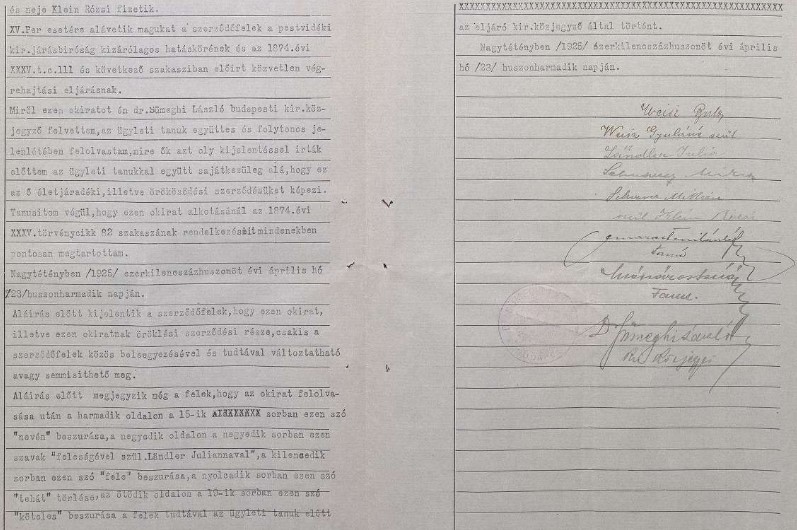 és neje Klein Rózsi fizetik.
XV.Per esetére alávetik magukat a szerződőfelek a pestvidéki
kir.járásbíróság kizárólagos hatáskörének és az 1874.évi
XXXV.t.c.111 és következő szakasziban előirt közvetlen vég-
rehajtási eljárásnak.
Miről ezen okiratot én dr.Sümeghi László budapesti kir.köz-
jegyző felvettem,az ügyleti tanuk együttes és folytonos je-
lenlétében felolvastam,mire ők azt oly kijelentéssel irták
előttem az ügyleti tanukkal együtt sajátkezüleg alá,hogy ez
az ő életjáradéki,illetve örököödési szerződésüket képezi.
Tanusitom végül,hogy ezen okirat alkotásánál az 1874.évi
XXXV.törvénycikk 82 szakaszának rendelkezéseit mindenekben
pontosan megtartottam.
Nagytétényben /1925/ ezerkilencszázhuszonöt évi április hó
/23/huszonharmadik napján.
Aláirás előtt kijelentik a szerződőfelek,hogy ezen okirat,
illetve ezen okiratnak öröklési szerződési része,csakis a
szerződőfelek közös beleegyezésével és tudtával változtatható
avagy semmisithető meg.
Aláirás előtt megjegyzik még a felek,hogy az okirat felolva-
sása után a harmadik oldalon a 15-ik sorban ezen szó
"nevén" beszurása,a negyedik oldalon a negyedik sorban ezen
szavak "feleségével szül.Löndler Juliannaval",a kilencedik
sorban ezen szó "fele" beszurása,a nyolcadik sorban ezen szó
"tehát" törlése,az ötödik oldalon a 19-ik sorban ezen szó
"köteles" beszurása a felek tudtával az ügyleti tanuk előtt
XXXXXXXXXXXXXXXXXXXXXXXXXXXXXXXXXXXXXXXXXXXXXXXXXXXXXXXXXXX
az eljáró kir.közjegyző által történt.
Nagytétényben /1925/ ezerkilencszázhuszonöt évi április
hó /23/ huszonharmadik napján.
Weisz
Weisz Gyuláné szül
Löndler Julia
szül Klein Rózsi
tanú
Tanu.
Dr Sümeghi László